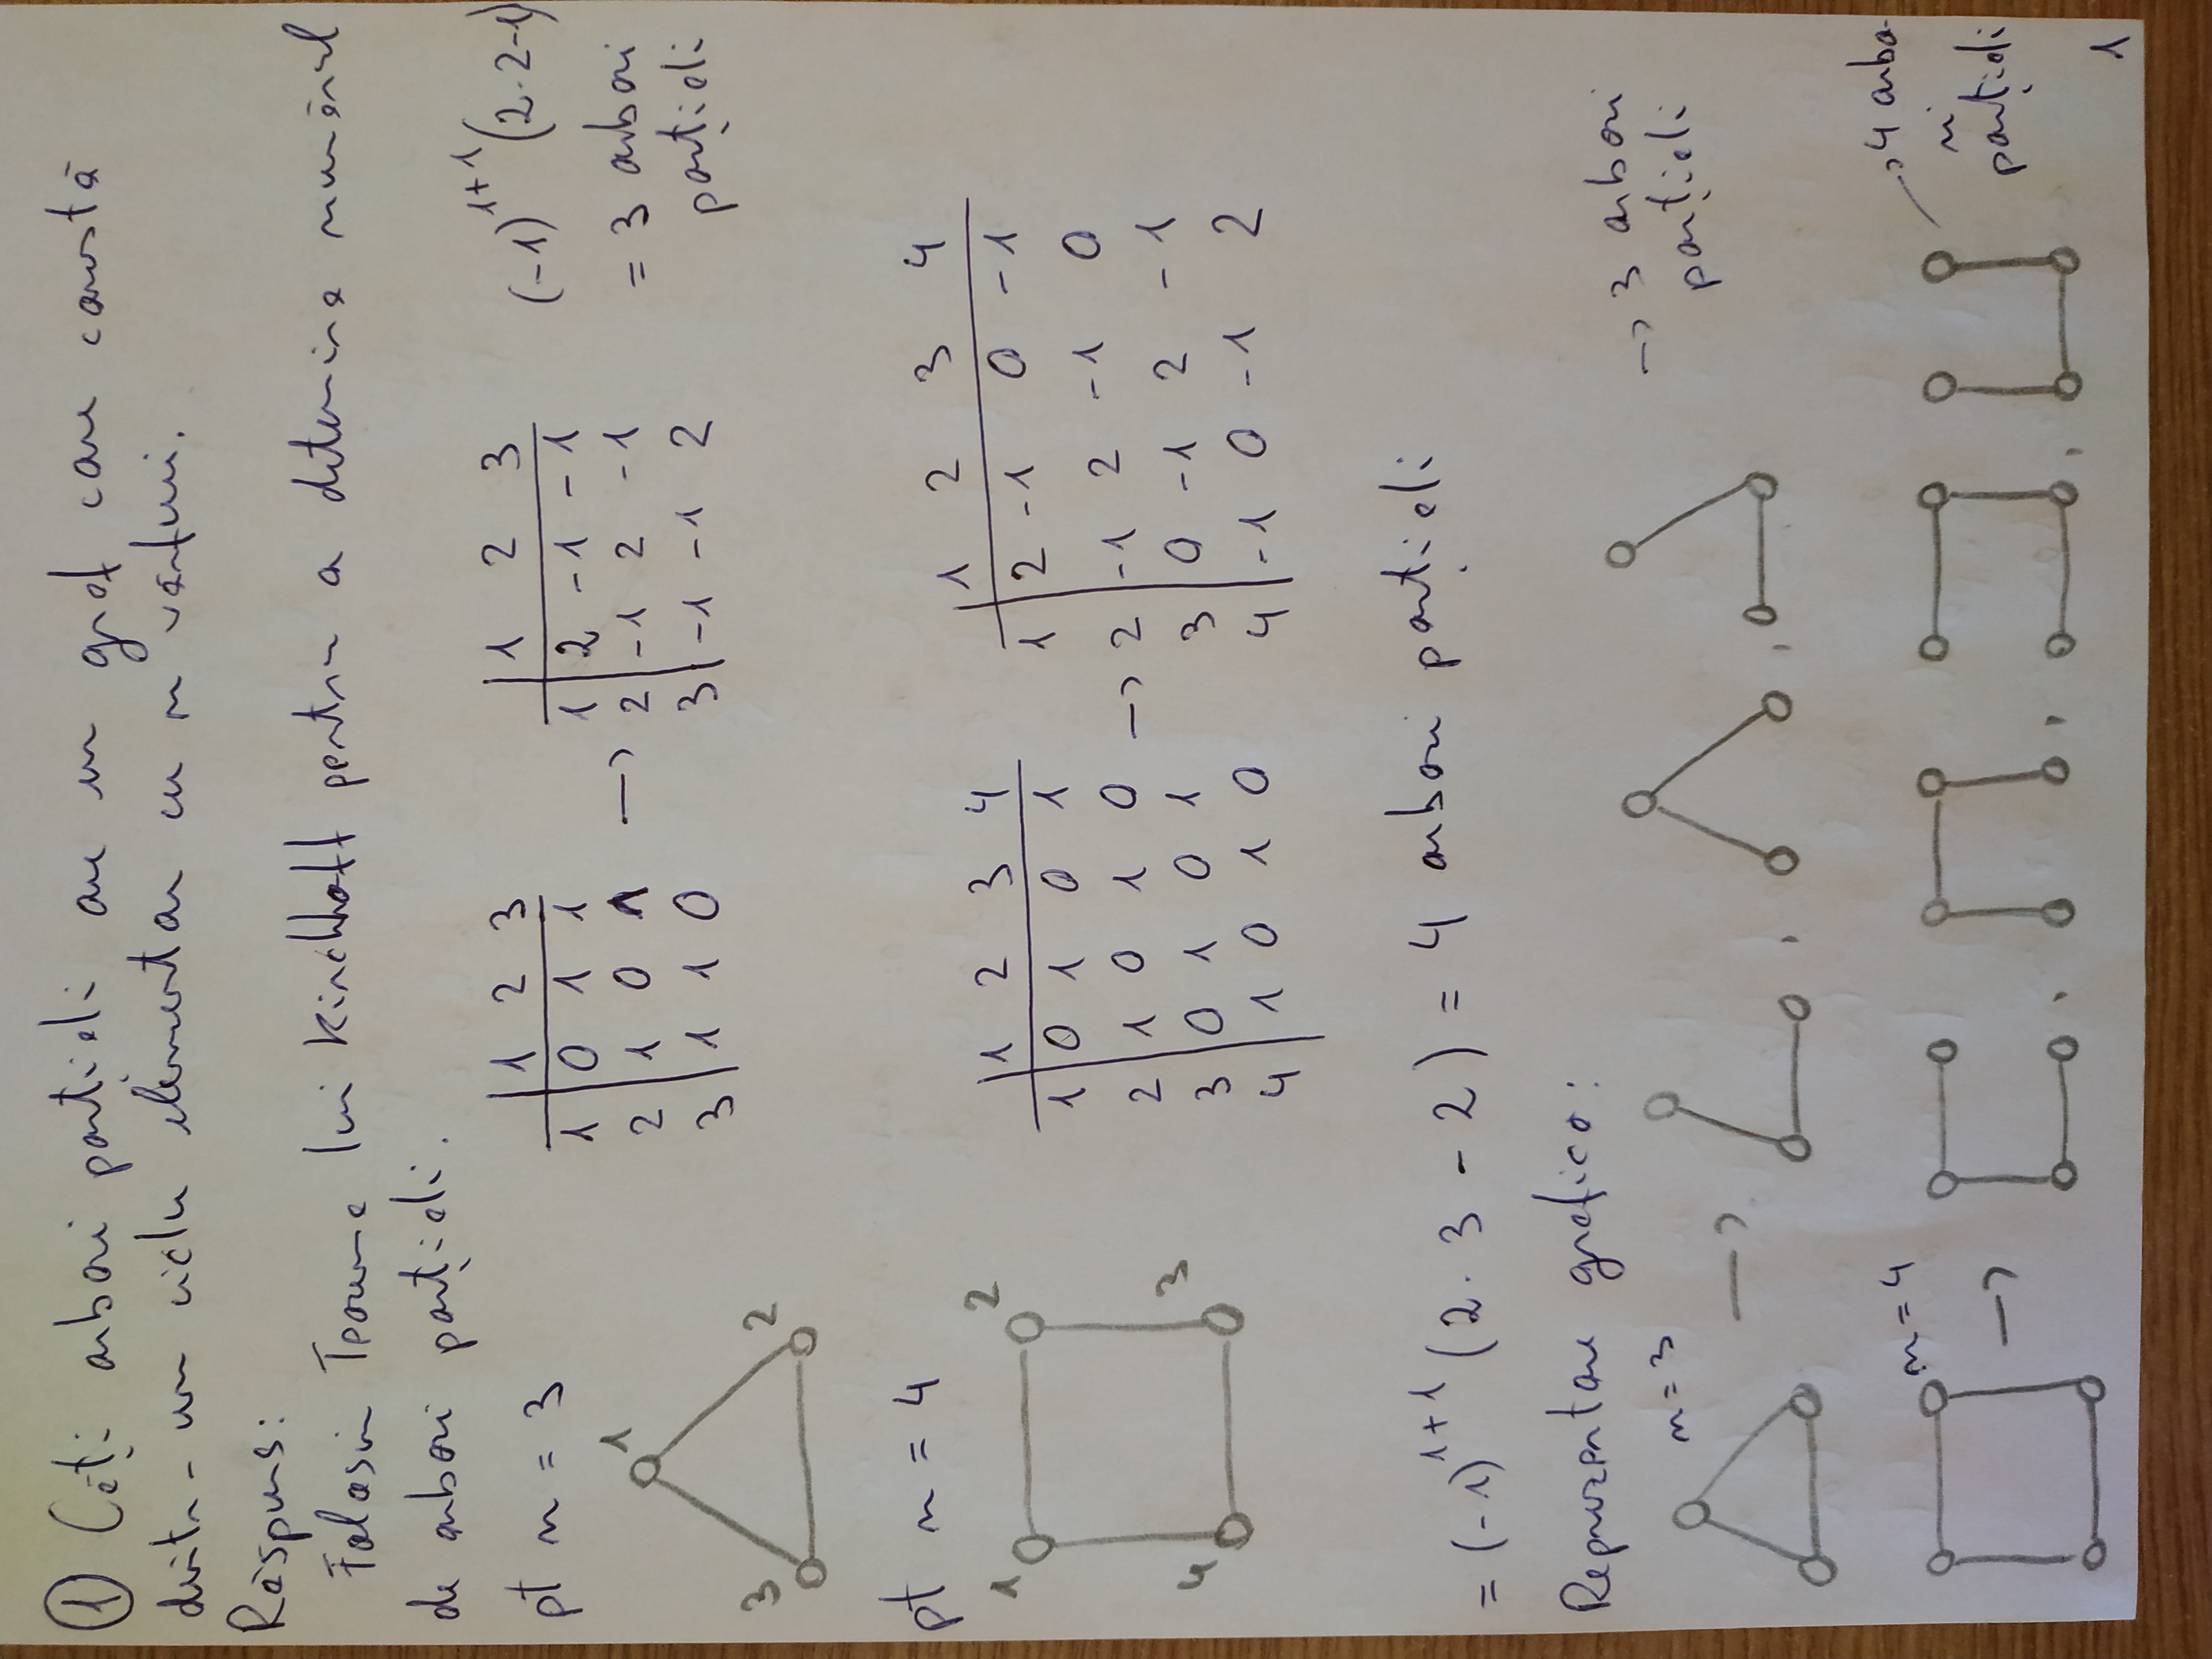 ① Câți arbori parțiali are un graf care constă
dintr-un ciclu elementar cu n vârfuri.
Răspuns:
Folosim Teorema lui Kirchhoff pentru a determina numărul
de arbori parțiali.
pt n = 3
1 2 3
1 0 1 1
2 1 0 1
3 1 1 0
→
1 2 3
1 2 -1 -1
2 -1 2 -1
3 -1 -1 2
(-1)^1+1 (2·2-1)
= 3 arbori
parțiali
1
3 2
pt n = 4
1 2
4 3
1 2 3 4
1 0 1 0 1
2 1 0 1 0
3 0 1 0 1
4 1 0 1 0
→
1 2 3 4
1 2 -1 0 -1
2 -1 2 -1 0
3 0 -1 2 -1
4 -1 0 -1 2
= (-1)^1+1 (2·3 - 2) = 4 arbori parțiali
Reprezentare grafica:
n=3 → , , → 3 arbori
parțiali
n=4 → , , , → 4 arbo-
ri
parțiali
1